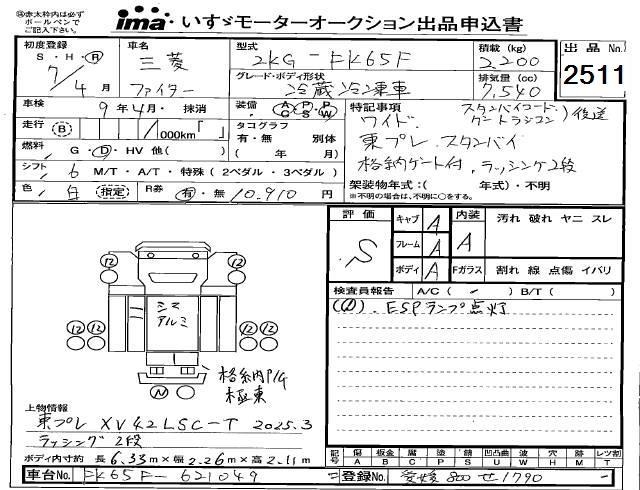 ㊟赤太枠内は必ず
ボールペンで
ご記入下さい。
ima いすゞモーターオークション出品申込書
初度登録 S・H・R 7/4月
車名 三菱 ファイター
型式 2KG-FK65F
グレード・ボディ形状 冷蔵冷凍車
積載(kg) 2,200
排気量(cc) 7,540
出品No. 2511
車検 9年4月・抹消
走行 B ,000km「 」
燃料 G・D・HV 他( )
シフト 6 M/T・A/T・特殊(2ペダル・3ペダル)
色 白 (指定) R券 有・無 10,910円
装備 A/C P/S P/W
タコグラフ 有・無 別体
( 年 月)
特記事項 スタンバイコード、ゲートラジコン)後送
ワイド、
東プレ、スタンバイ
格納ゲート付、ラッシング2段
架装物年式:( 年式)・不明
※不明の場合は、不明に○をする。
評価 S
キャブ A
フレーム A
ボディ A
内装 A
Fガラス
汚れ 破れ ヤニ スレ
割れ 線 点傷 イバリ
検査員報告 A/C( - ) B/T( )
ESPランプ点灯
12 12
シマアルミ
12 12 12 12
格納P/G
極東
N
上物情報
東プレ XV42LSC-T 2025.3
ラッシング2段
ボディ内寸約 長6.33m×幅2.26m×高2.11m
記号 傷A 板金B 腐C 塗P 錆S 凹凸曲U 波W 穴H ホシM レンズ割T
車台No. FK65F-621049
登録No. 愛媛 800 せ1790